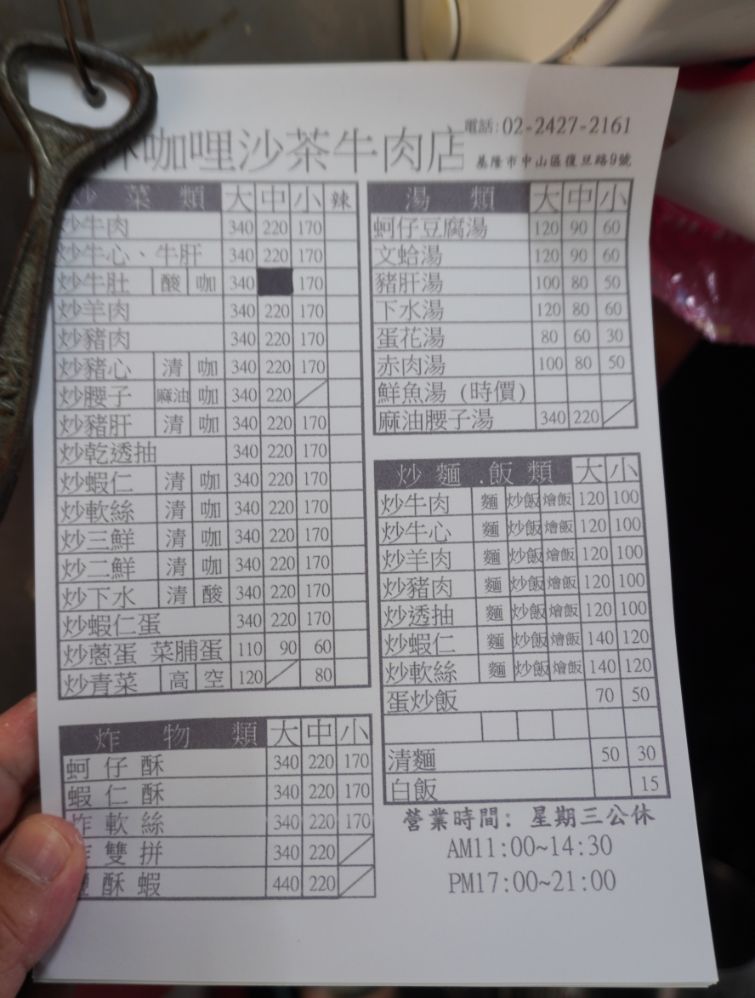 電話:02-2427-2161
咖哩沙茶牛肉店
基隆市中山區復旦路9號
炒菜類 大 中 小 辣
炒牛肉 340 220 170
炒牛心、牛肝 340 220 170
炒牛肚 酸 咖 340 170
炒羊肉 340 220 170
炒豬肉 340 220 170
炒豬心 清 咖 340 220 170
炒腰子 麻油 咖 340 220
炒豬肝 清 咖 340 220 170
炒乾透抽 340 220 170
炒蝦仁 清 咖 340 220 170
炒軟絲 清 咖 340 220 170
炒三鮮 清 咖 340 220 170
炒二鮮 清 咖 340 220 170
炒下水 清 酸 340 220 170
炒蝦仁蛋 340 220 170
炒蔥蛋 菜脯蛋 110 90 60
炒青菜 高 空 120 80
炸物類 大 中 小
蚵仔酥 340 220 170
蝦仁酥 340 220 170
炸軟絲 340 220 170
雙拼 340 220
酥蝦 440 220
湯類 大 中 小
蚵仔豆腐湯 120 90 60
文蛤湯 120 90 60
豬肝湯 100 80 50
下水湯 120 80 60
蛋花湯 80 60 30
赤肉湯 100 80 50
鮮魚湯(時價)
麻油腰子湯 340 220
炒麵.飯類 大 小
炒牛肉 麵 炒飯 燴飯 120 100
炒牛心 麵 炒飯 燴飯 120 100
炒羊肉 麵 炒飯 燴飯 120 100
炒豬肉 麵 炒飯 燴飯 120 100
炒透抽 麵 炒飯 燴飯 120 100
炒蝦仁 麵 炒飯 燴飯 140 120
炒軟絲 麵 炒飯 燴飯 140 120
蛋炒飯 70 50
清麵 50 30
白飯 15
營業時間: 星期三公休
AM11:00~14:30
PM17:00~21:00